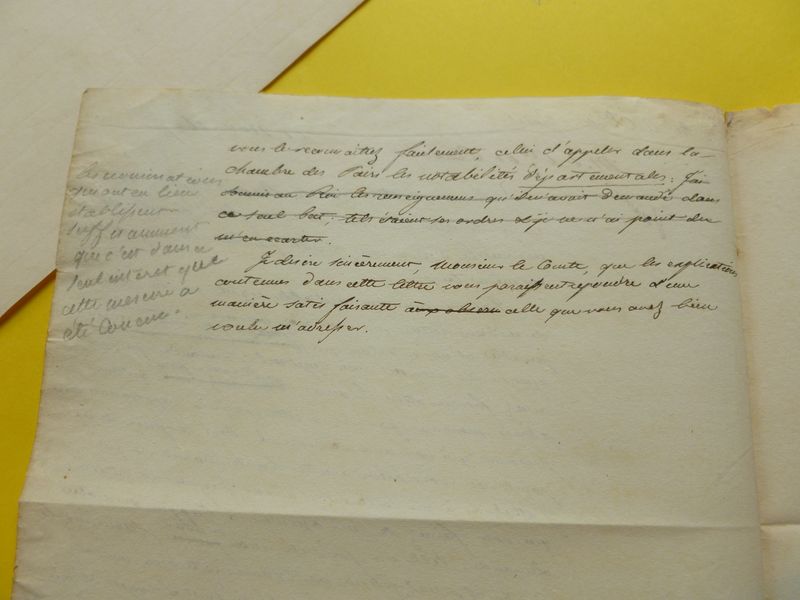 vous le reconnaîtrez facilement, celui d'appeler dans la
chambre des Pairs les notabilités départementales. J'ai
donné au Roi les renseignemens qu'il m'avait demandés dans
ce seul but, tels étaient ses ordres et je ne n'ai point du
m'en ecarter.
Je désire sincèrement, Monsieur le Comte, que les explications
contenues dans cette lettre vous paraissent repondre d'une
manière satisfaisante à celle que vous avez bien
voulu m'adresser.
les nominations
qui ont eu lieu
établissent
suffisamment
que c'est dans ce
seul intérêt que
cette mesure a
été conçue.